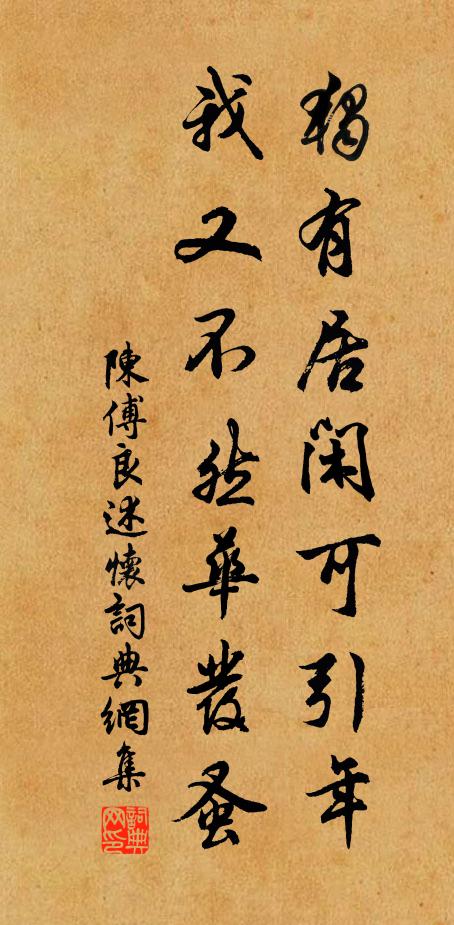 獨有居閑可引年
我又不然華發蚤
陳傅良述懷詞典網集
詞典網印